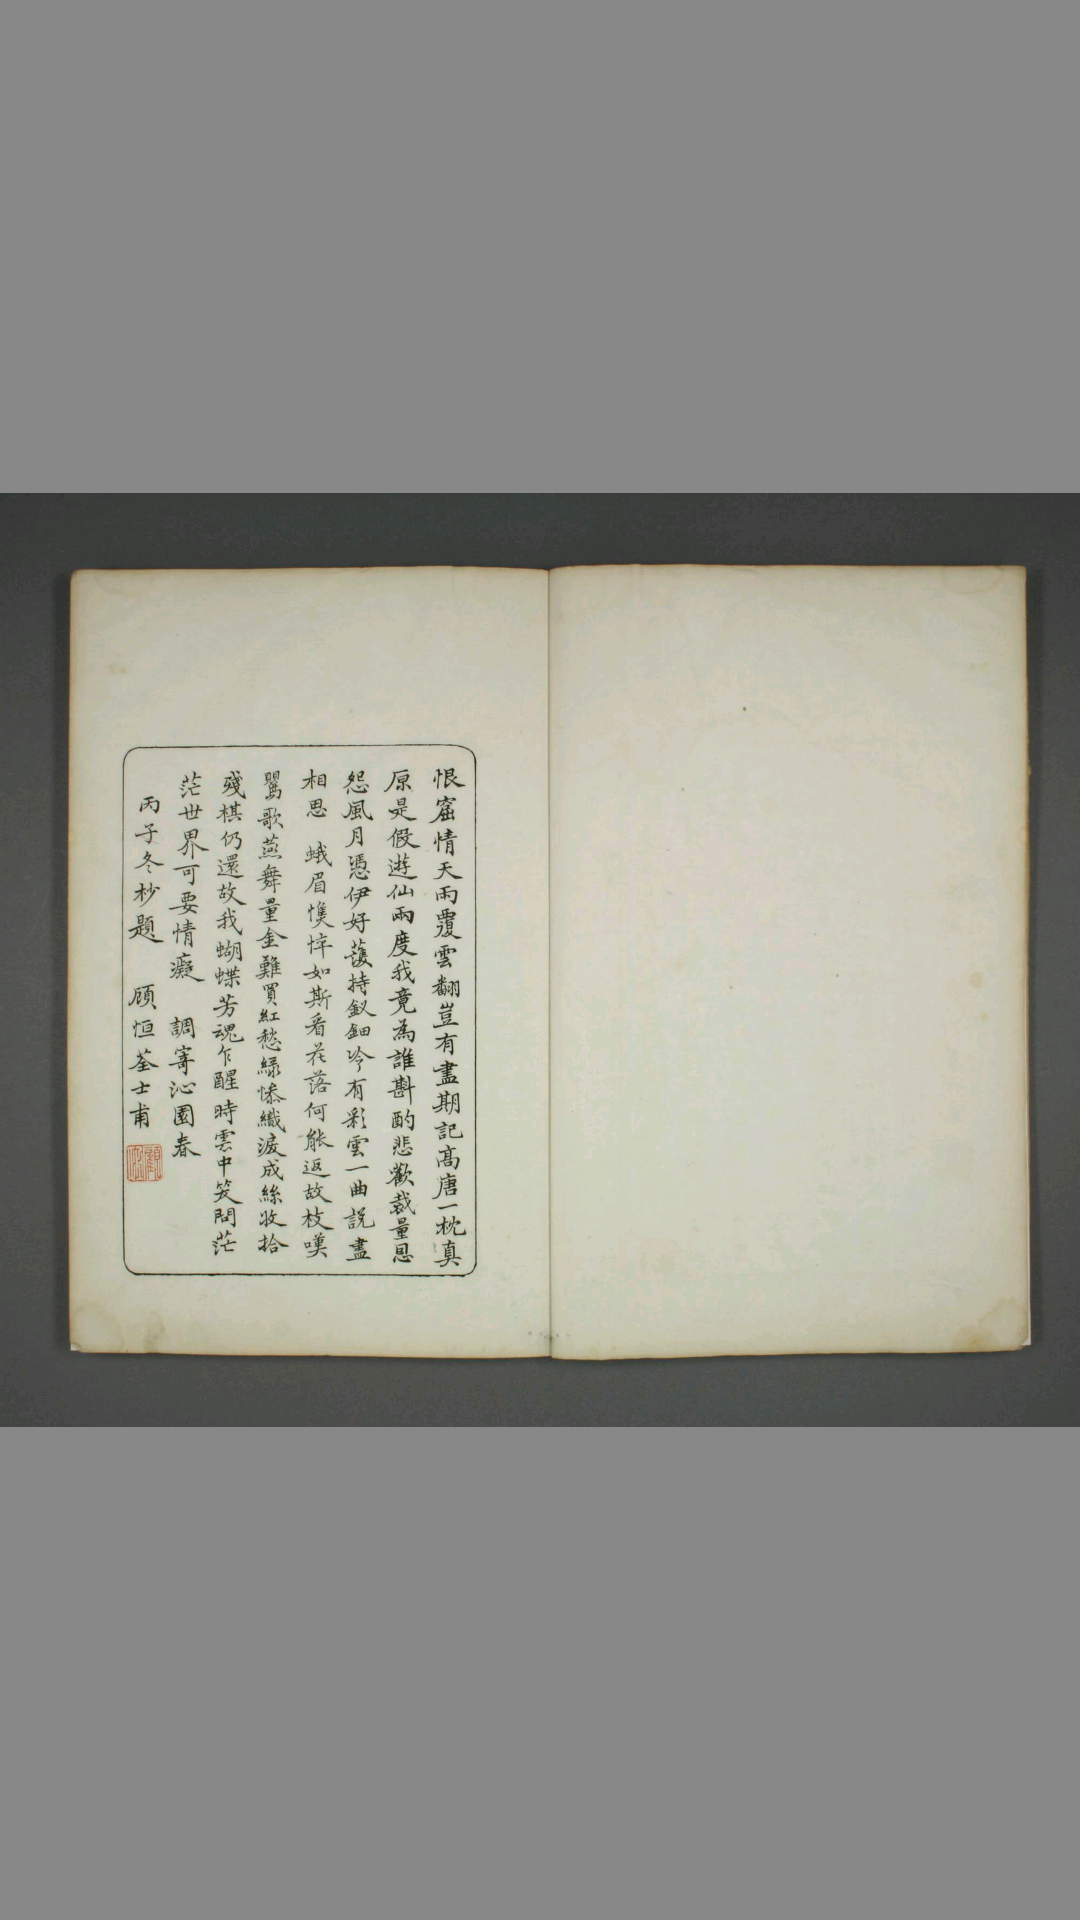 恨窟情天雨覆雲翻豈有盡期記高唐一枕真
原是假遊仙兩度我竟為誰斟酌悲歡裁量恩
怨風月憑伊好護持釵鈿冷有彩雲一曲說盡
相思　蛾眉憔悴如斯看花落何能返故枝嘆
鶯歌燕舞量金難買紅愁綠慘織淚成絲收拾
殘棋仍還故我蝴蝶芳魂乍醒時雲中笑問茫
茫世界可要情癡　調寄沁園春
丙子冬杪題　顧恒荃士甫